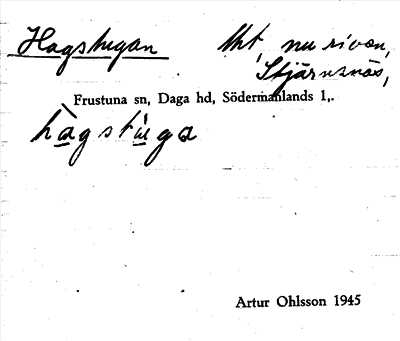 Hagstugan lht, nu riven,
Stjärnsnäs,
Frustuna sn, Daga hd, Södermanlands l.
hàgstùga
Artur Ohlsson 1945